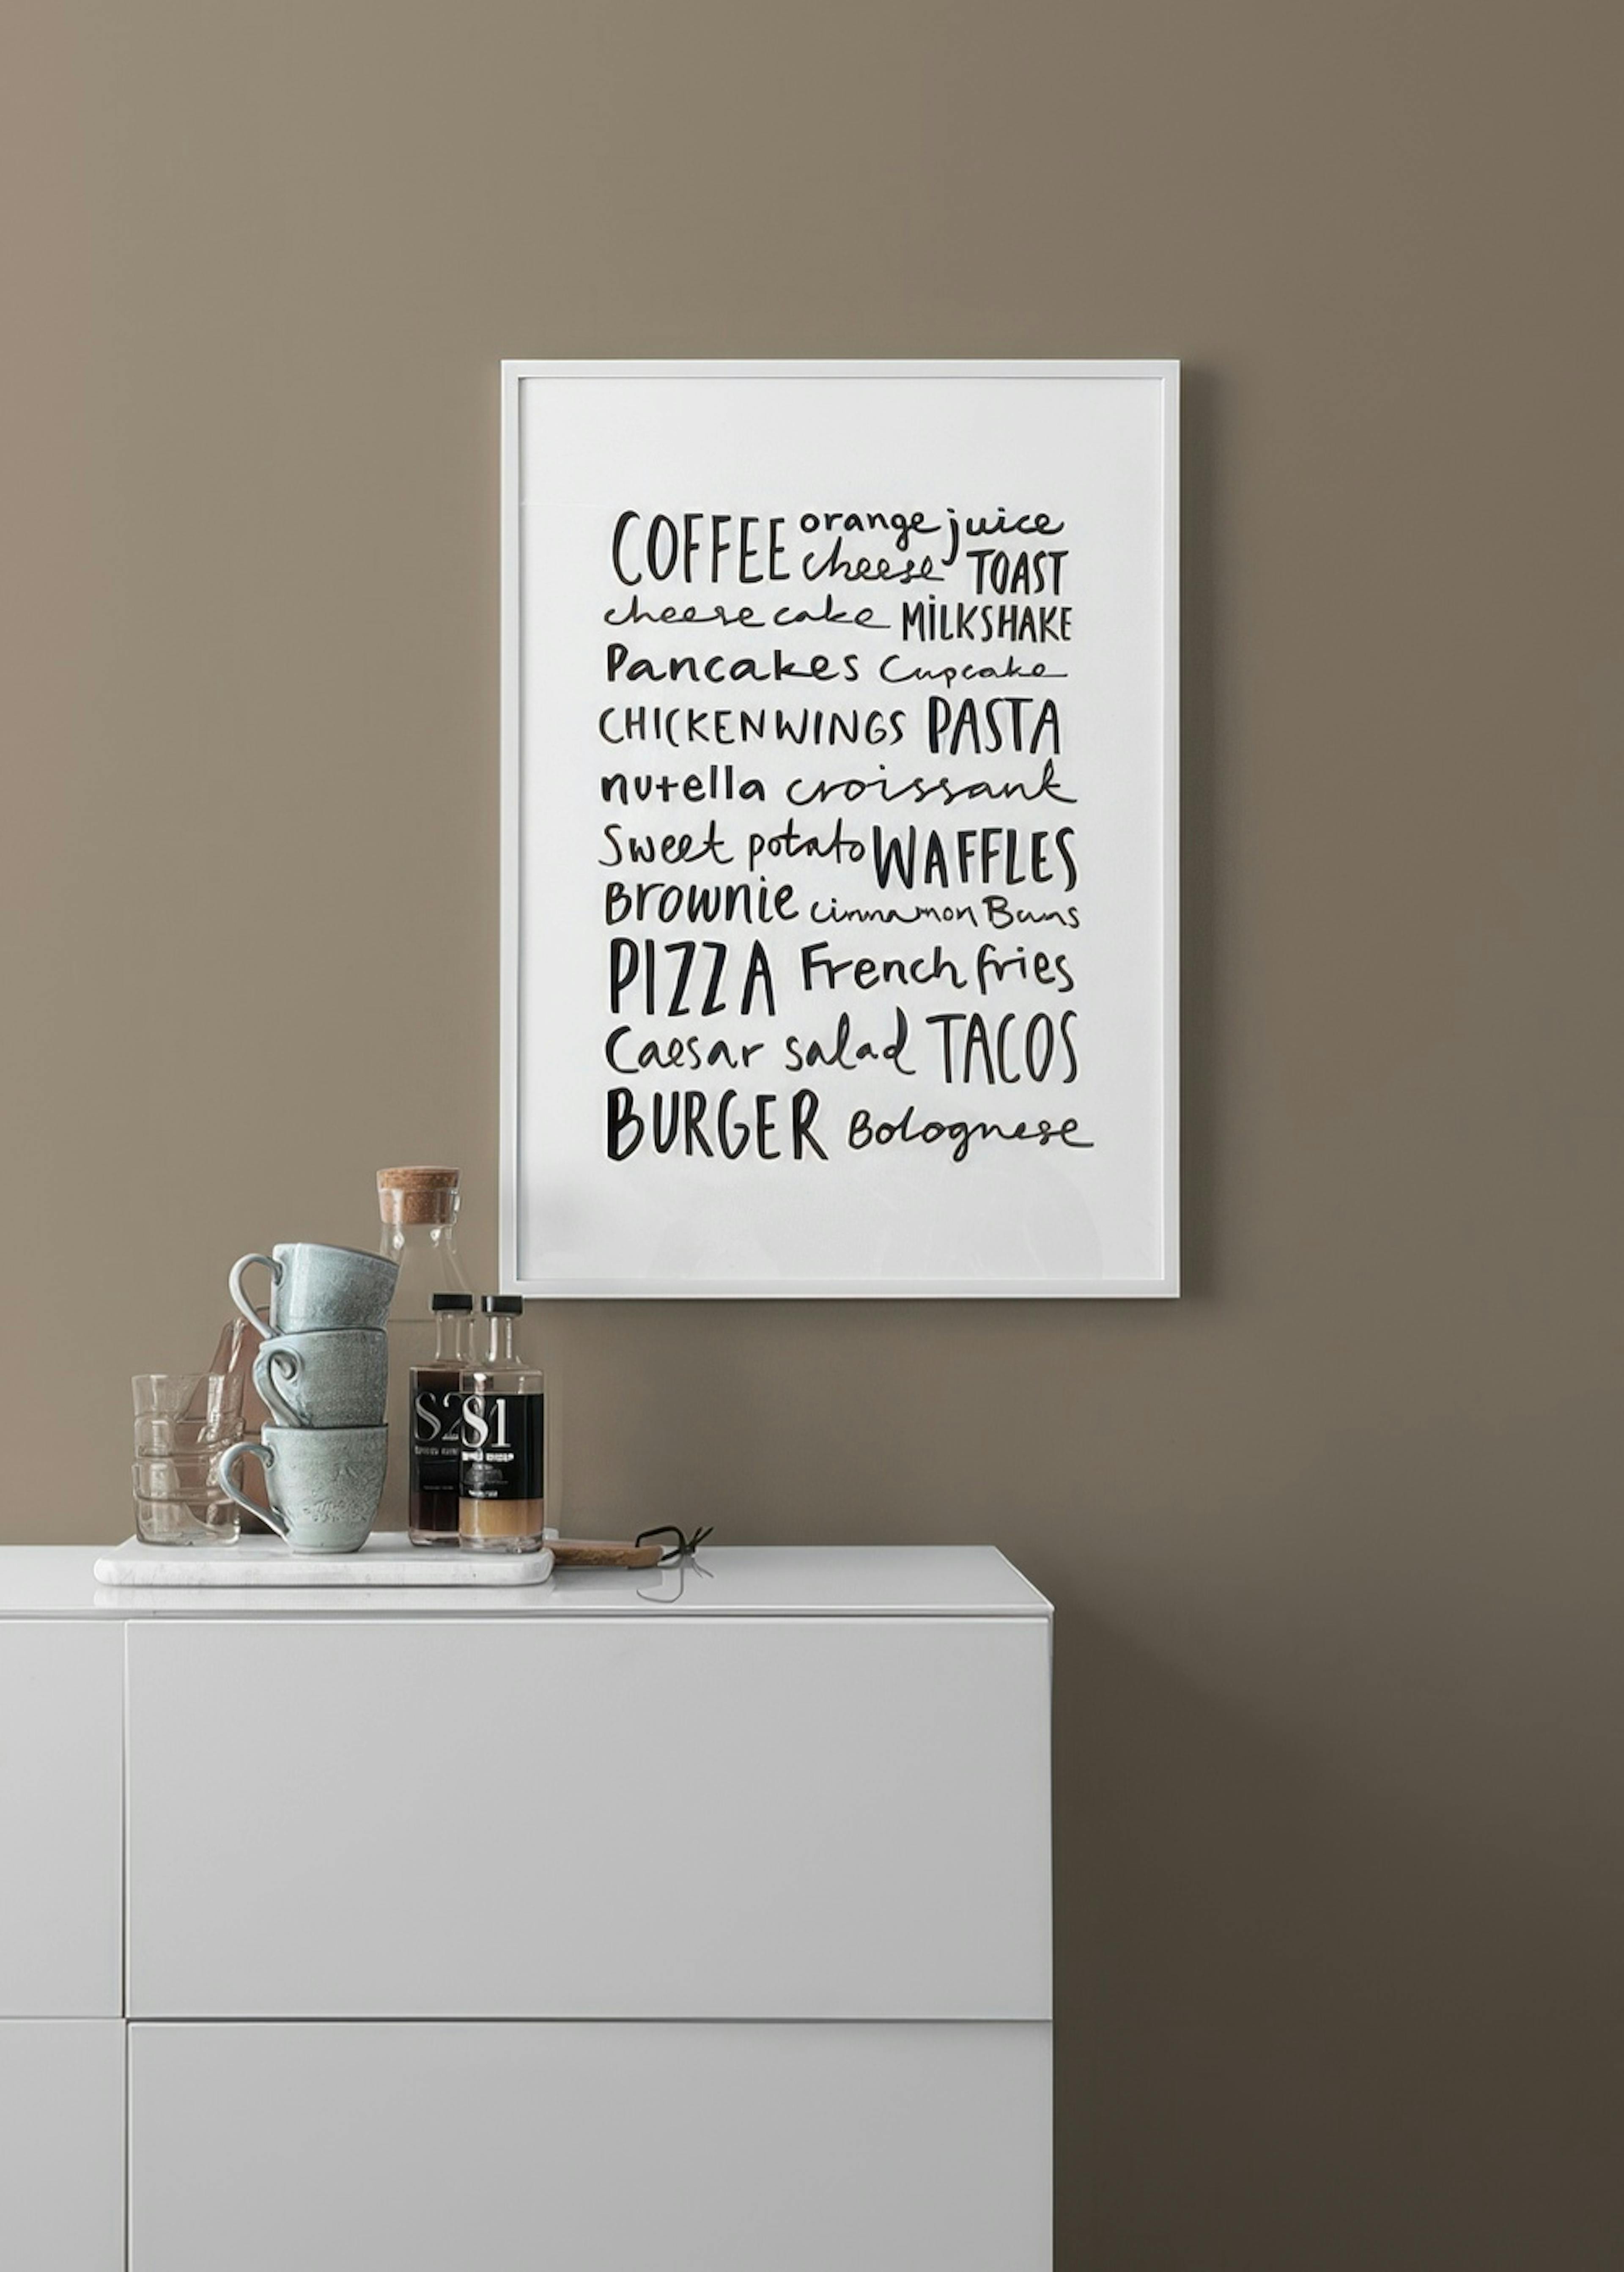 COFFEE orange juice
cheese TOAST
cheese cake MILKSHAKE
Pancakes Cupcake
CHICKENWINGS PASTA
nutella croissant
Sweet potato WAFFLES
Brownie cinnamon Buns
PIZZA French fries
Caesar salad TACOS
BURGER Bolognese
S2
S1